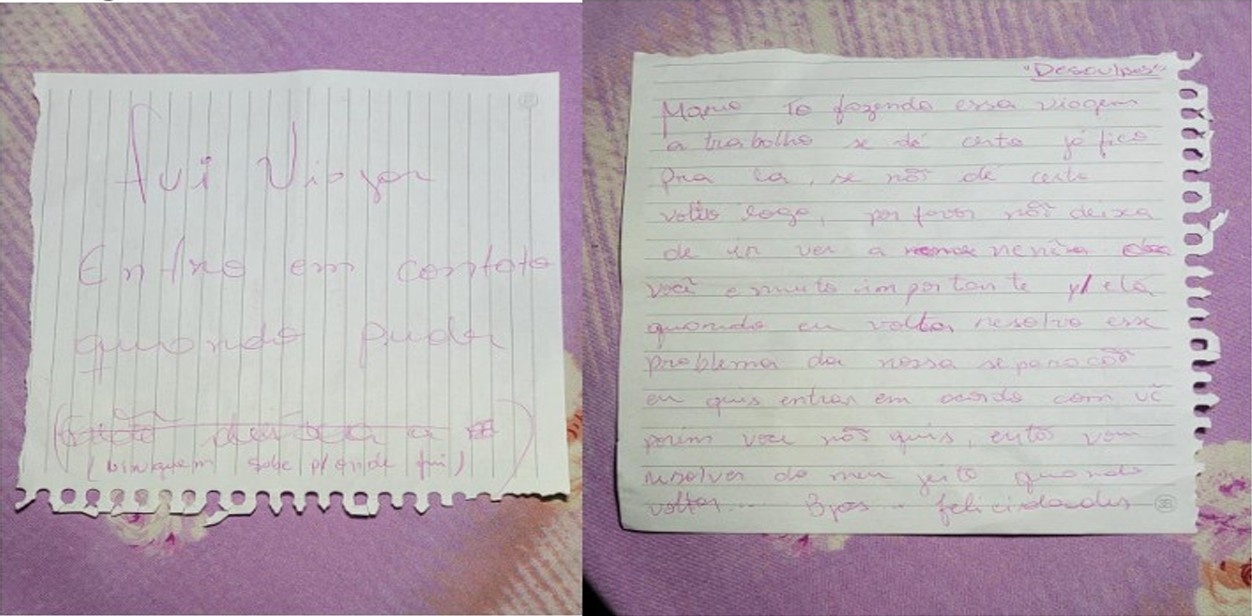 Fui Viajar
Entro em contato
quando puder
(não deixa a
(ninguém sabe p/ onde fui)
"Desculpas"
Mario To fazendo essa viagem
a trabalho se dé certo já fico
pra la, se não dé certo
volto logo, por favor não deixa
de ir ver a nenina
você e muito importante p/ ela
quando eu voltar resolvo esse
problema da nossa separação
eu quis entrar em acordo com vc
porem voce não quis, então vou
resolver do meu jeito quando
voltar... Bjos .. felicidades